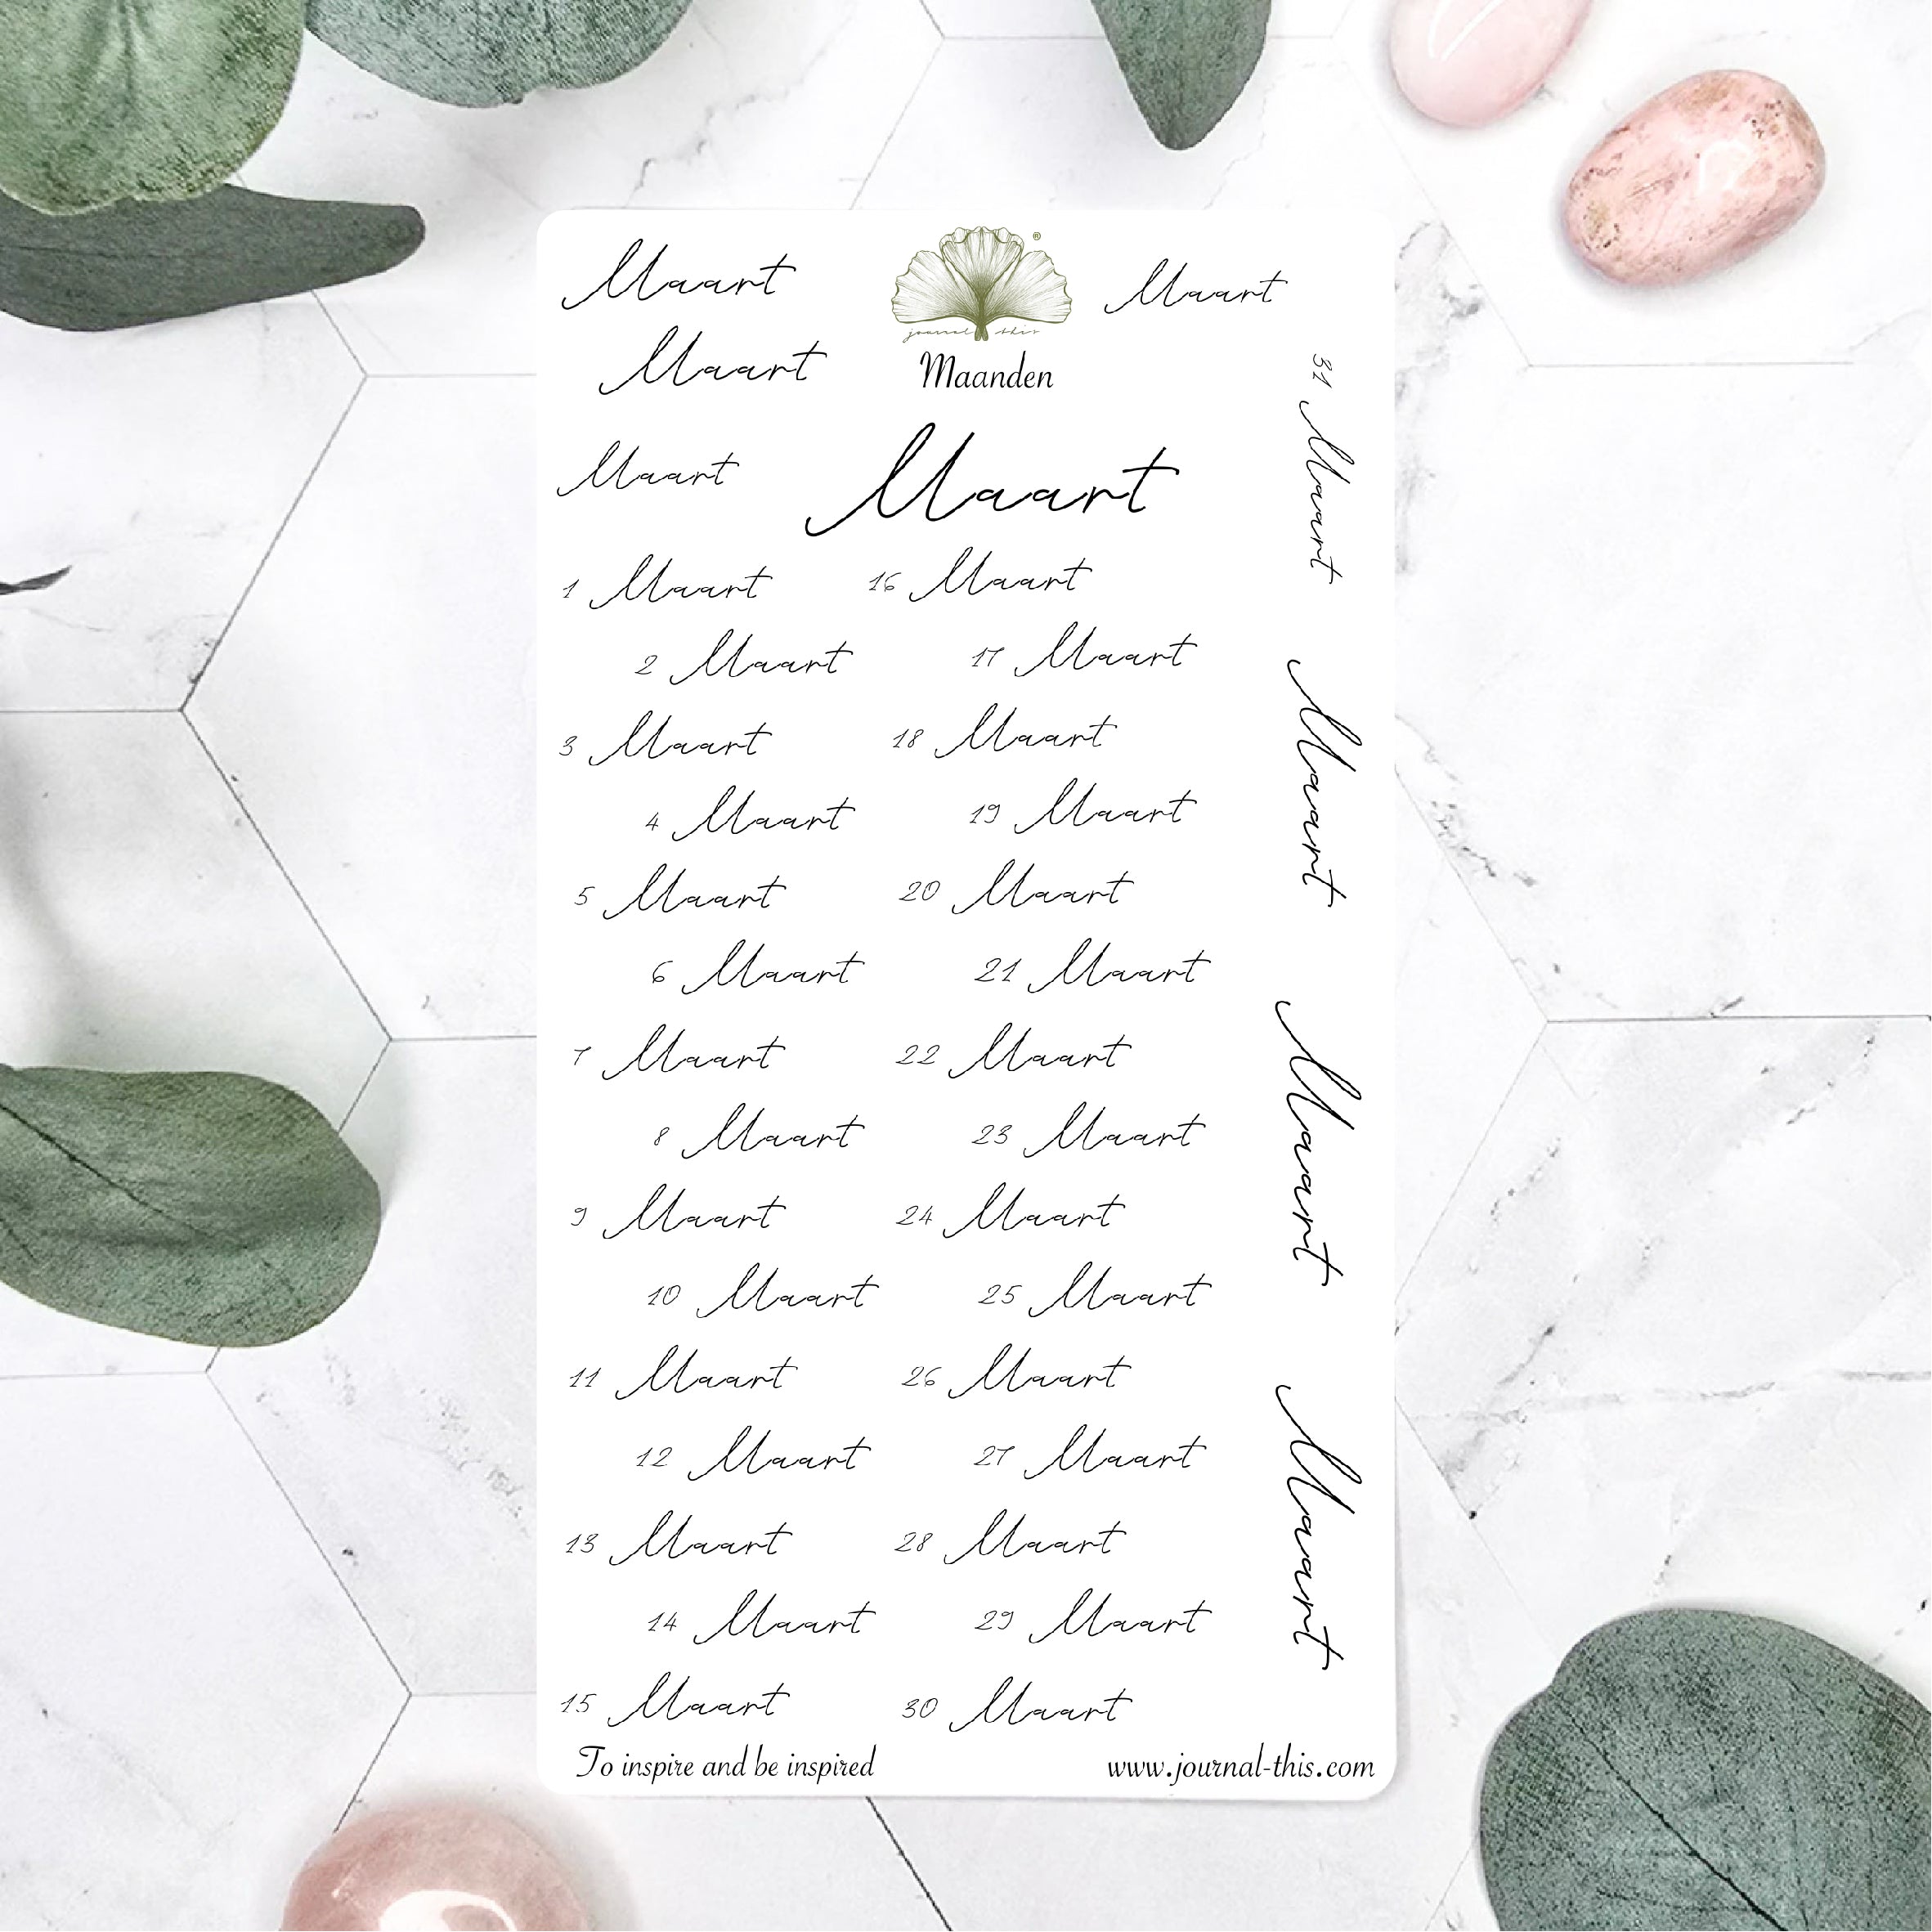 Maart
®
Maart
journal this
Maart
Maanden
Maart
Maart
1 Maart
16 Maart
2 Maart
17 Maart
3 Maart
18 Maart
4 Maart
19 Maart
5 Maart
20 Maart
6 Maart
21 Maart
7 Maart
22 Maart
8 Maart
23 Maart
9 Maart
24 Maart
10 Maart
25 Maart
11 Maart
26 Maart
12 Maart
27 Maart
13 Maart
28 Maart
14 Maart
29 Maart
15 Maart
30 Maart
31 Maart
Maart
Maart
Maart
To inspire and be inspired
www.journal-this.com